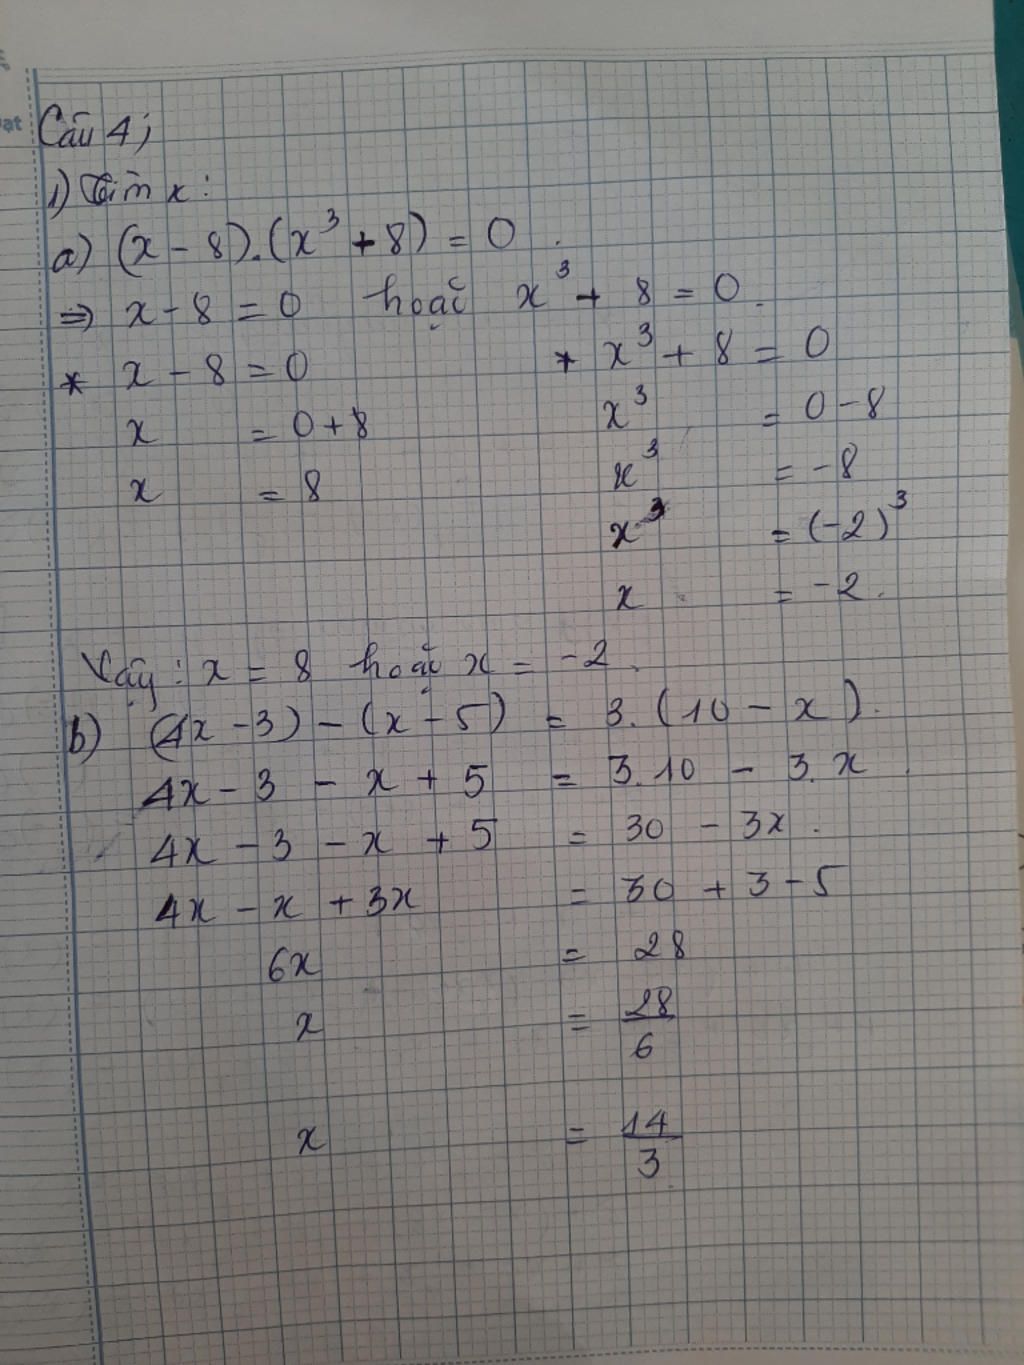 ạt
Câu 4;
1) Tìm x:
a) (x - 8).(x³ + 8) = 0.
⇒ x - 8 = 0 hoặc x³ + 8 = 0.
* x - 8 = 0 * x³ + 8 = 0
x = 0 + 8 x³ = 0 - 8
x = 8 x³ = -8
x³ = (-2)³
x = -2.
Vậy: x = 8 hoặc x = -2.
b) (4x - 3) - (x - 5) = 3.(10 - x).
4x - 3 - x + 5 = 3.10 - 3.x.
4x - 3 - x + 5 = 30 - 3x.
4x - x + 3x = 30 + 3 - 5
6x = 28
x = 28/6
x = 14/3